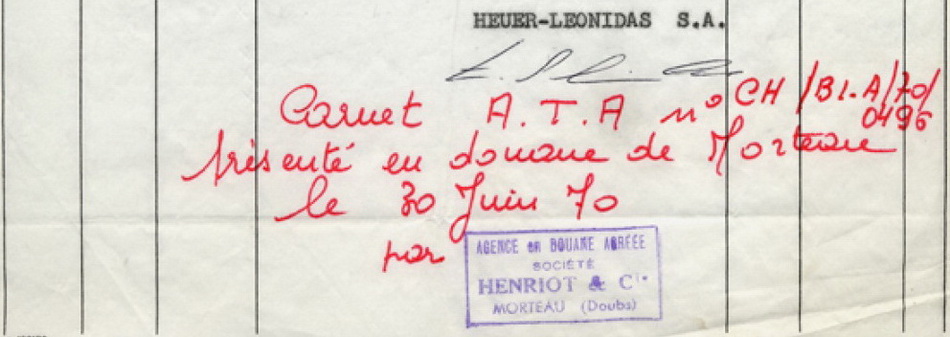 HEUER-LEONIDAS S.A.
Carnet A.T.A n° CH/BI.A/70/
0496
présenté en douane de Morteau
le 30 Juin 70
par
AGENCE en DOUANE AGRÉÉE
SOCIÉTÉ
HENRIOT & Cie
MORTEAU (Doubs)